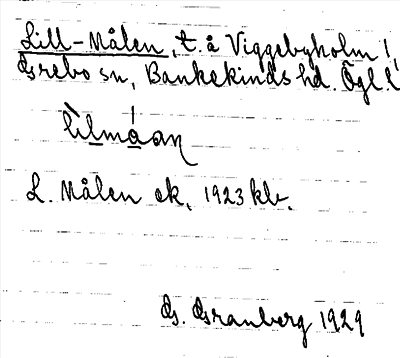 Lill-Målen, t. å Viggebyholm 1,
Grebo sn, Bankekinds hd. Ögl.
lìlmáan
L. Målen ek. 1923 kbr.
G. Granberg 1929